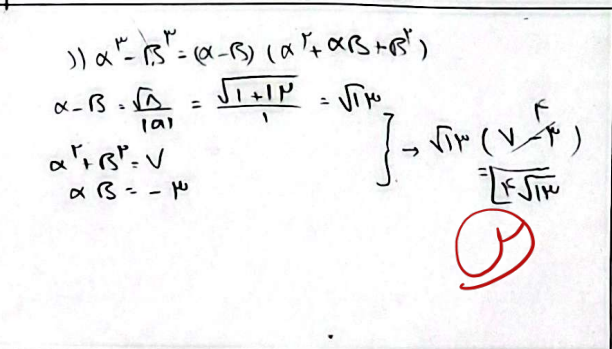 )) α^۳ - β^۳ = (α-β) (α^۲ + αβ + β^۲)
α-β = √Δ / |a| = √۱+۱۲ / ۱ = √۱۳
α^۲ + β^۲ = ۷
αβ = -۳
} → √۱۳ (۷-۳) ۴
= ۴√۱۳
۲